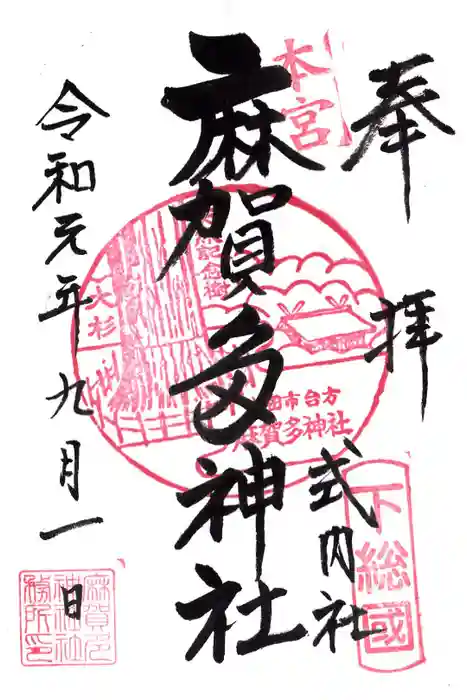 奉拝
式内社
下総國
本宮
麻賀多神社
記念樹
大杉
田市台方
麻賀多神社
令和元年九月一日
麻賀多
神社社
務所印